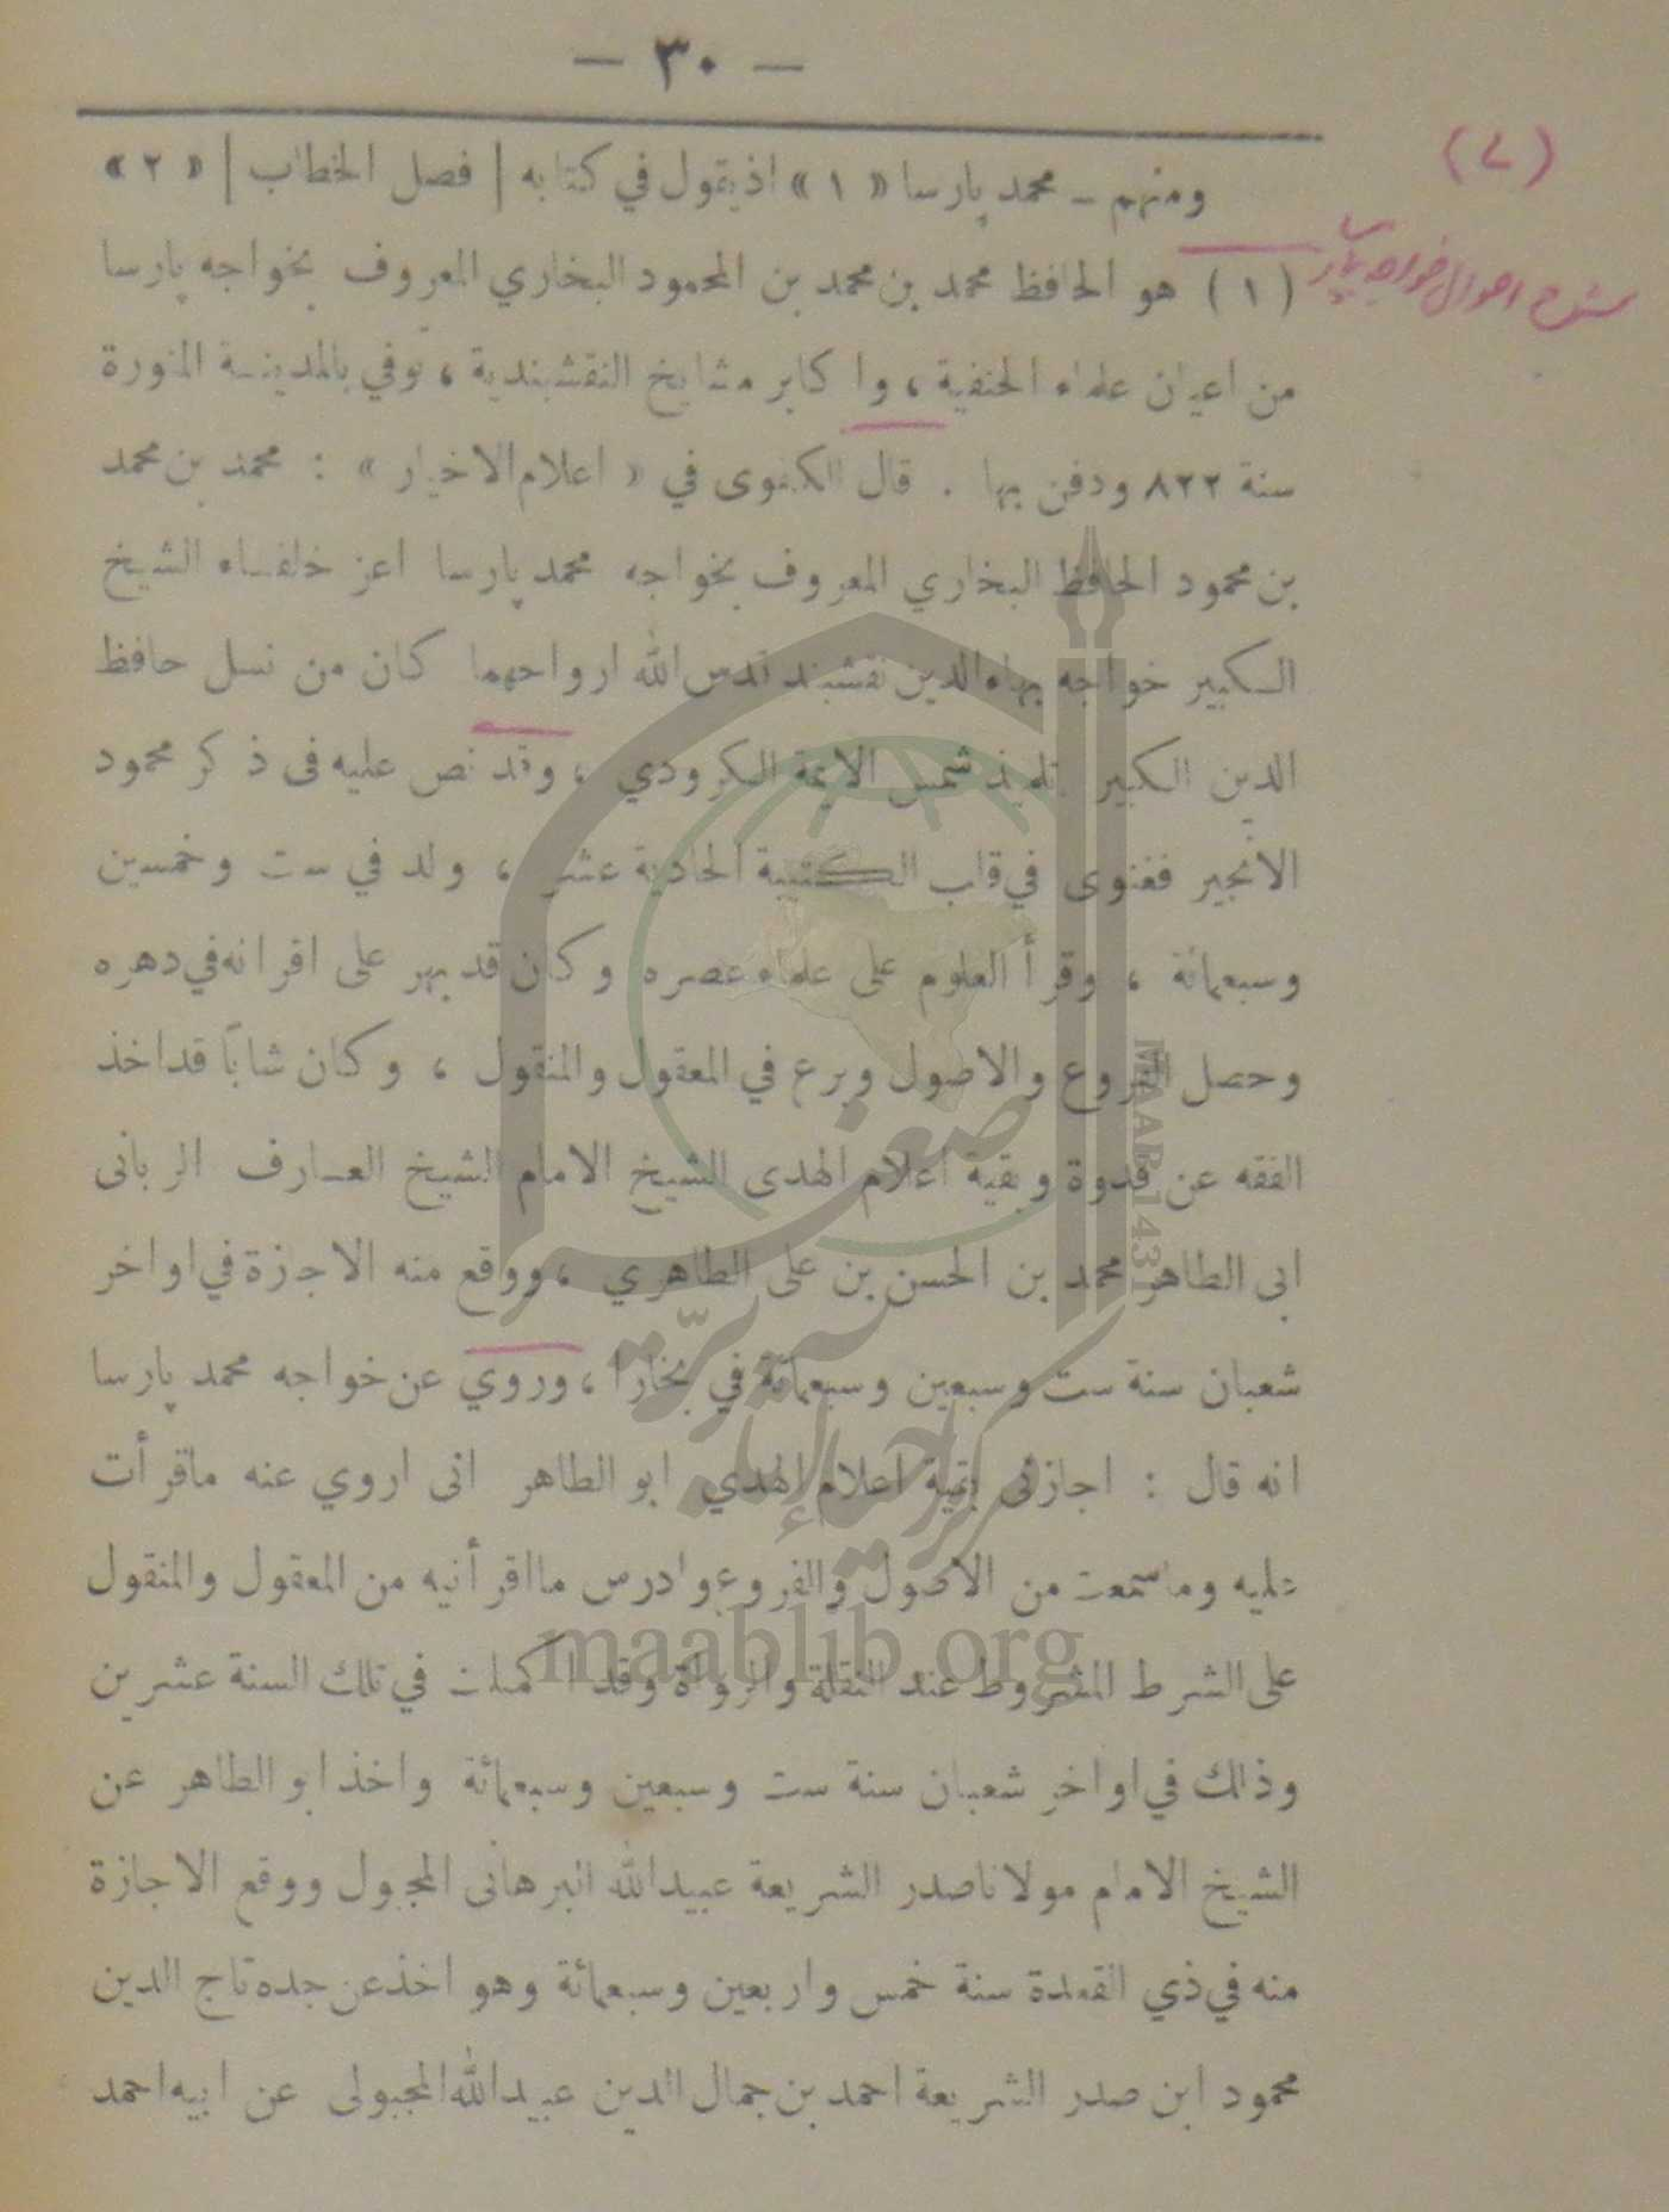 — ٣٠ —
(٧)
ومنهم ــ محمد پارسا « ١ » اذ يقول في كتابه | فصل الخطاب | « ٢ »
شرح احوال خواجه پارسا
( ١ ) هو الحافظ محمد بن محمد بن المحمود البخاري المعروف بخواجه پارسا
من اعيان علماء الحنفية ، وا كابر مشايخ النقشبندية ، توفي بالمدينة المنورة
سنة ٨٢٢ ودفن بها . قال الكفوى في « اعلام الاخيار » : محمد بن محمد
بن محمود الحافظ البخاري المعروف بخواجه محمد پارسا اعز خلفاء الشيخ
الكبير خواجه بهاء الدين نقشبند قدس الله ارواحهما كان من نسل حافظ
الدين الكبير تلميذ شمس الايمة الكرودي ، وقد نص عليه فى ذ كر محمود
الانجير فغنوى في قلب الكتيبة الحادية عشر ، ولد في ست وخمسين
وسبعمائة ، وقرأ العلوم على علماء عصره وكان قد بهر على اقرانه في دهره
وحصل الفروع والاصول وبرع في المعقول والمنقول ، وكان شابًا قد اخذ
الفقه عن قدوة وبقية اعلام الهدى الشيخ الامام الشيخ العارف الربانى
ابى الطاهر محمد بن الحسن بن على الطاهري ، ووقع منه الاجازة في اواخر
شعبان سنة ست وسبعين وسبعمائة في بخارا ، وروي عن خواجه محمد پارسا
انه قال : اجازنى بقية اعلام الهدي ابو الطاهر انى اروي عنه ما قرأت
عليه وما سمعت من الاصول والفروع وادرس ما اقرأنيه من المعقول والمنقول
على الشرط المشروط عند النقلة والرواة وقد ا كملت في تلك السنة عشرين
وذلك في اواخر شعبان سنة ست وسبعين وسبعمائة واخذ ابو الطاهر عن
الشيخ الامام مولانا صدر الشريعة عبيد الله البرهانى المحبول ووقع الاجازة
منه في ذي القعدة سنة خمس واربعين وسبعمائة وهو اخذ عن جده تاج الدين
محمود ابن صدر الشريعة احمد بن جمال الدين عبيد الله المحبولى عن ابيه احمد
MAAB 1431
maablib.org